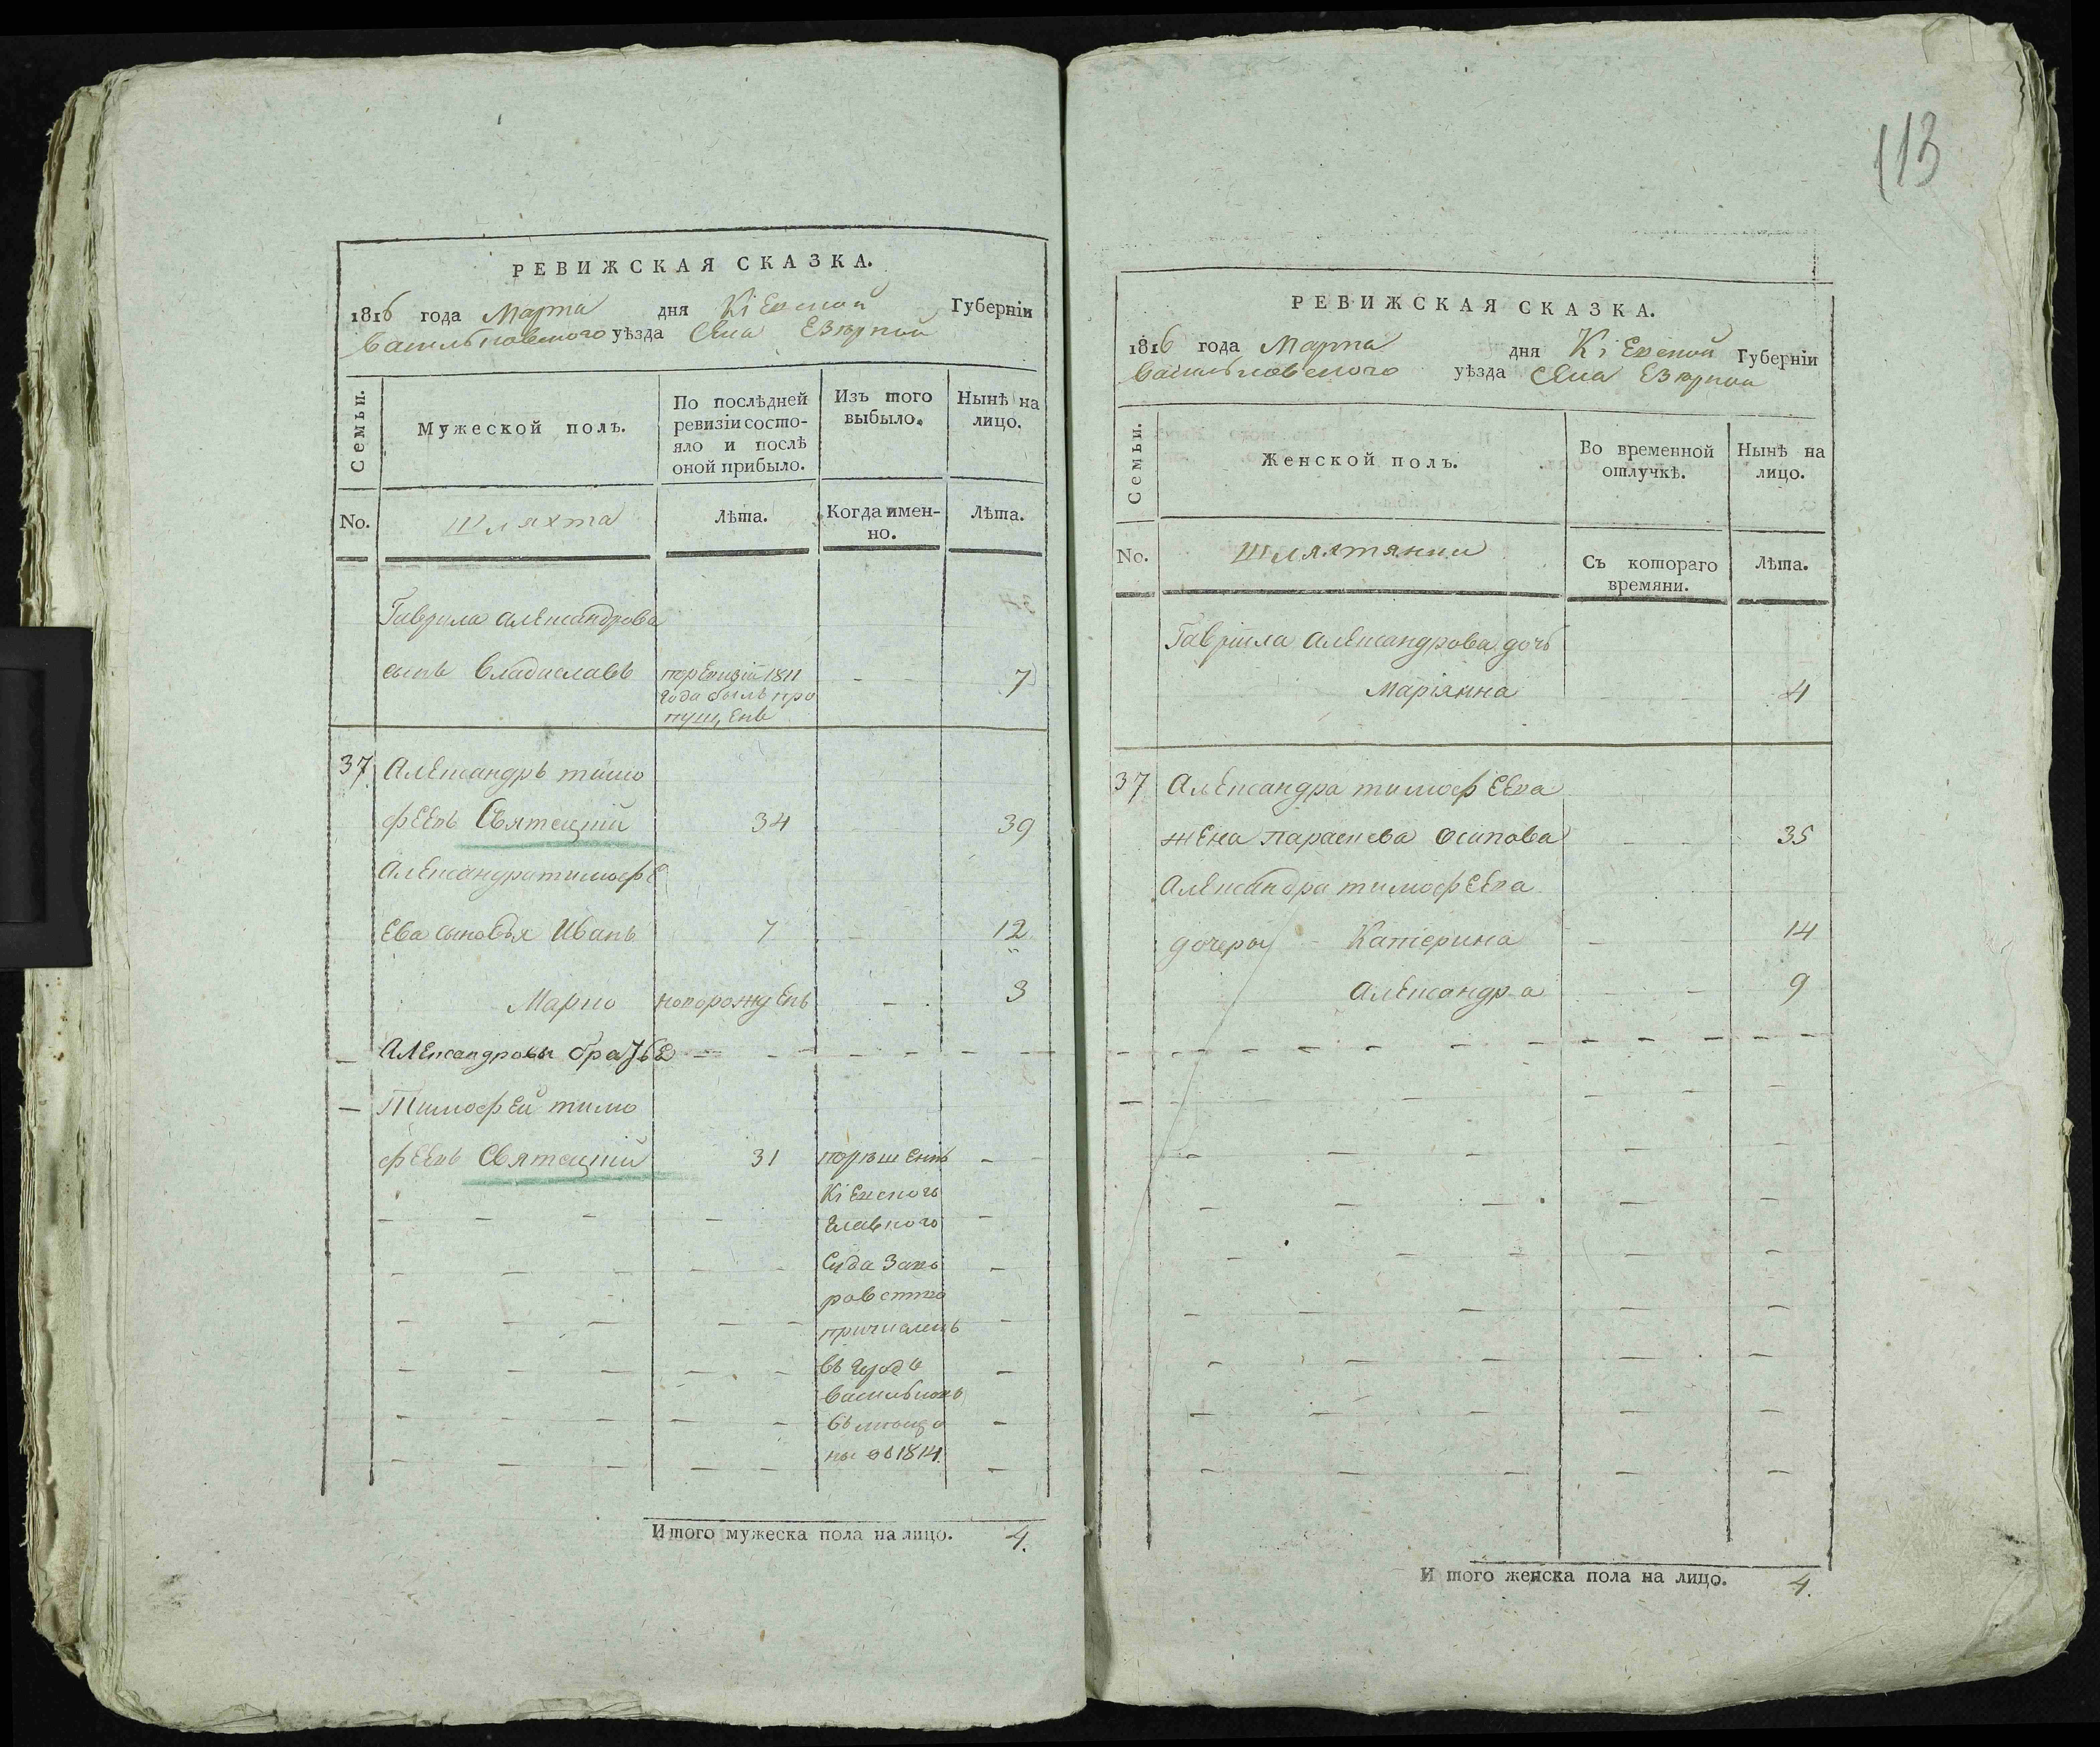 113
РЕВИЖСКАЯ СКАЗКА.
1816 года Марта дня Кіевской Губерніи
Васильковского уѣзда Села Езерной
Семьи.
Мужеской полъ.
По послѣдней
ревизіи состо-
яло и послѣ
оной прибыло.
Изъ того
выбыло.
Нынѣ на
лицо.
No.
Шляхта
Лѣта.
Когда имен-
но.
Лѣта.
Гаврила Александрова
сынъ Владиславъ
поревизіи 1811
года былъ про
пущенъ
7
37 Александръ тимо
фѣевъ Святецкий 34 39
Александра тимофе
ева сыновья Иванъ 7 12
Марко новорожденъ 3
Александровы братье
Тимофей тимо
фѣевъ Святецкий 31
порѣшению
Кіевского
Главного
Суда
причисленъ
въ городе
Васильковѣ
въ мѣща
не 1814.
Итого мужеска пола на лицо. 4.
РЕВИЖСКАЯ СКАЗКА.
1816 года Марта дня Кіевской Губерніи
Васильковского уѣзда Села Езерной
Семьи.
Женской полъ.
Во временной
отлучкѣ.
Нынѣ на
лицо.
No.
Шляхтянки
Съ котораго
времяни.
Лѣта.
Гавріила Александрова дочь
Маріянна 4
37 Александра тимофеева
жена параскева осипова 35
Александра тимофеева
дочеры Катерина 14
Александра 9
И того женска пола на лицо. 4.